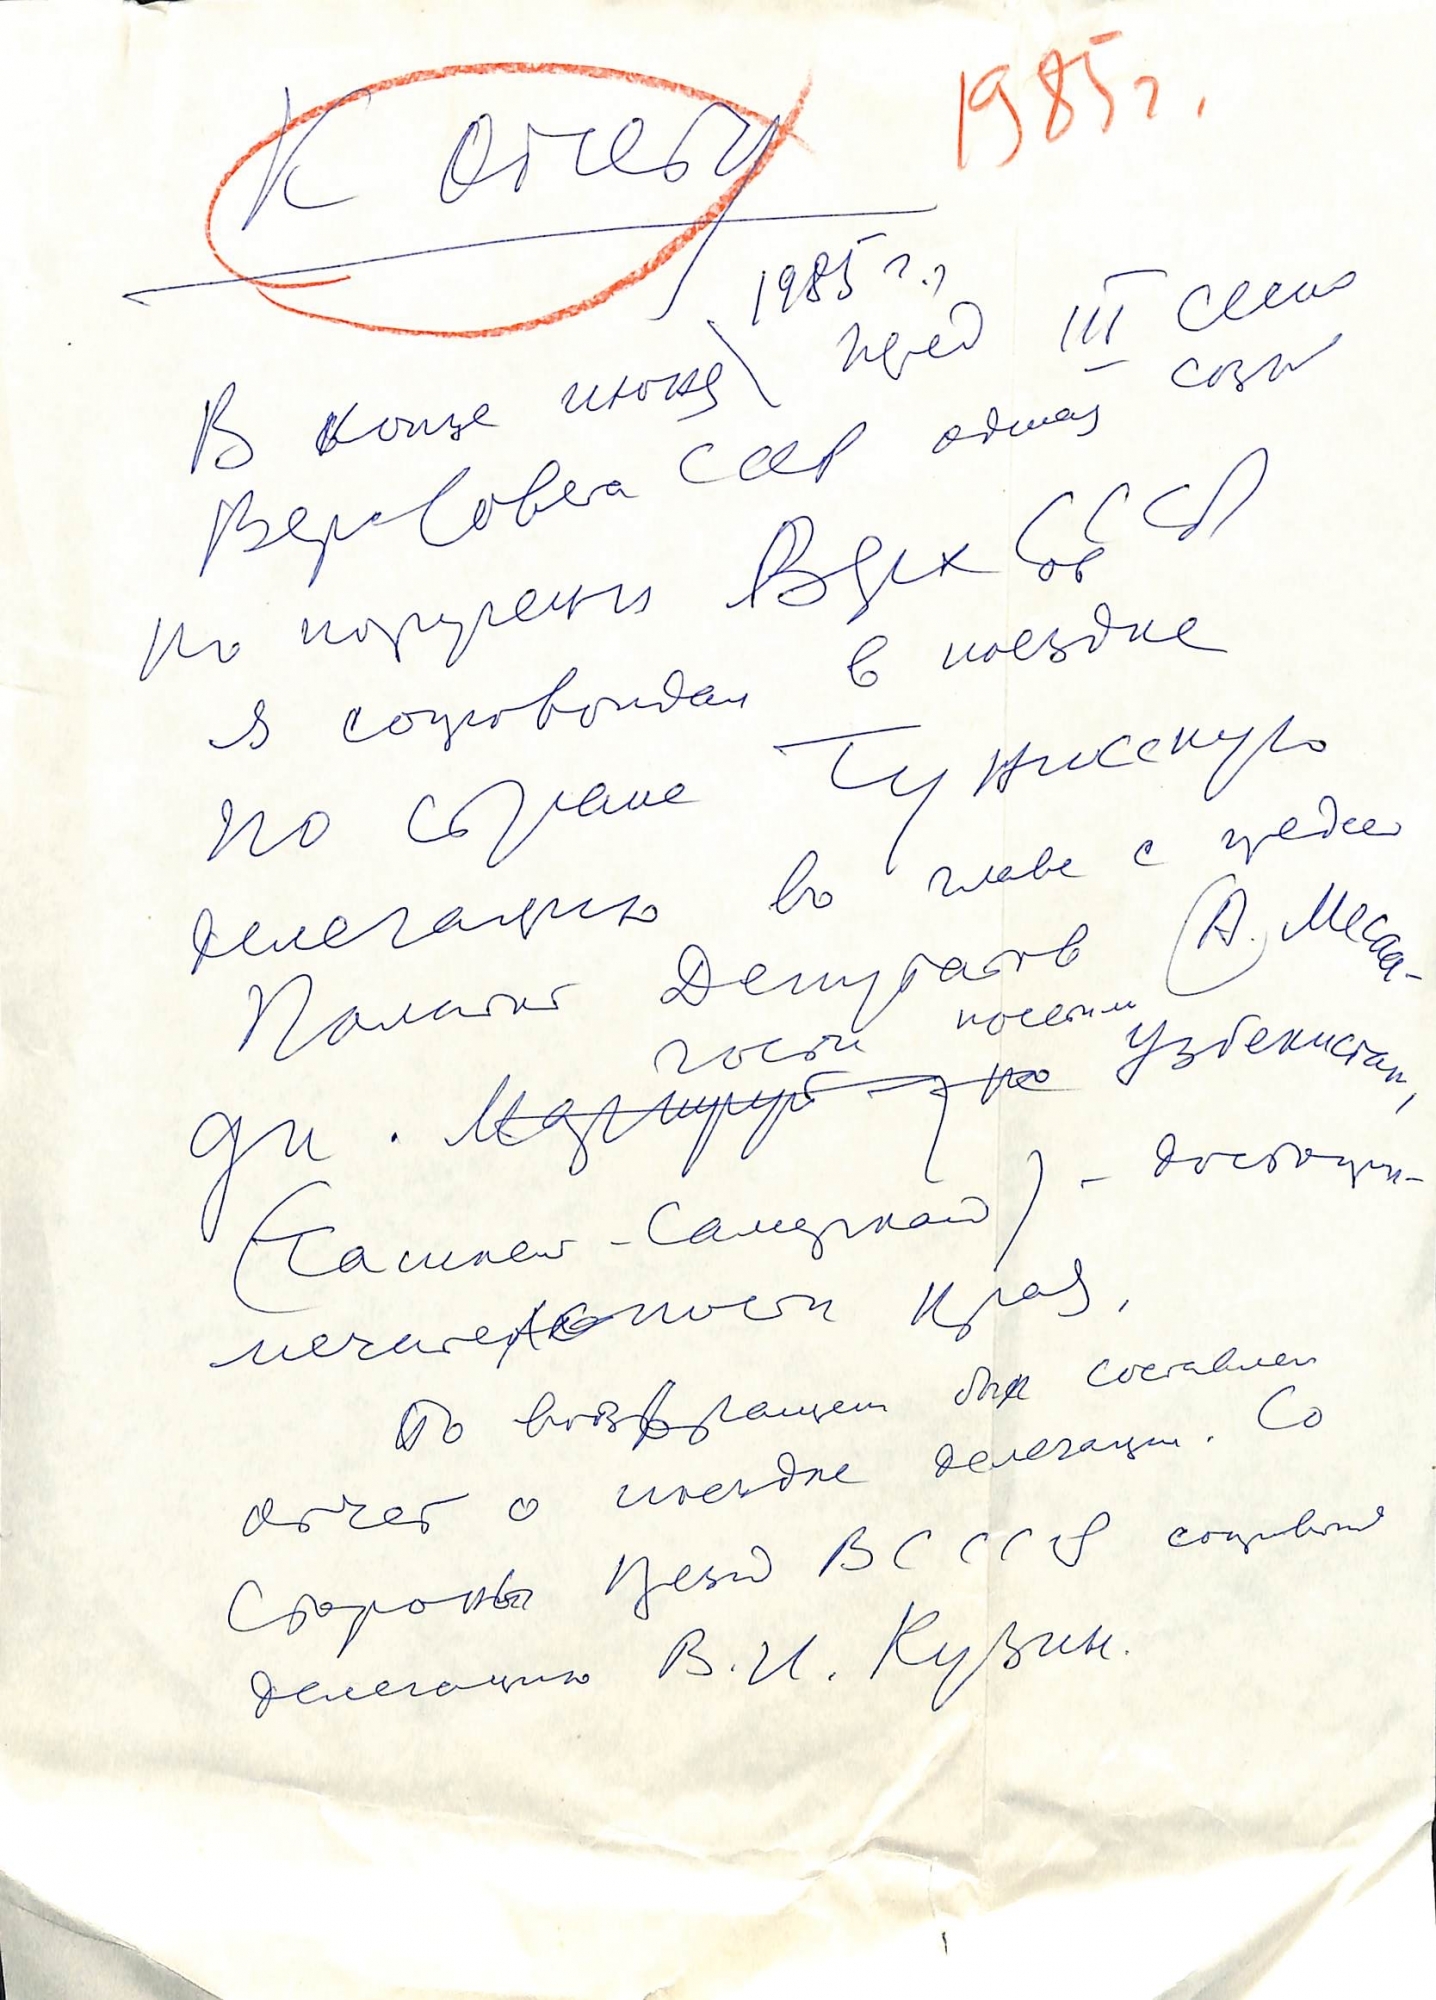 К отчету
1985 г.
1985 г.,
В конце июня перед III сессие
Верх Совета СССР созы
по поручени Верх Сов СССР
я сопровождал в поездке
по стране Тунисскую
делегацию во главе с предсе
Палаты Депутатов (А. Меса-
ди. гости посетили Узбекистан,
Маршрут – по
(Ташкент - Самарканд) – достопри-
мечательности края.
По возвращен был составлен
отчет о поездке делегации. Со
стороны През ВС СССР сопровожд
делегацию В. И. Кузин.